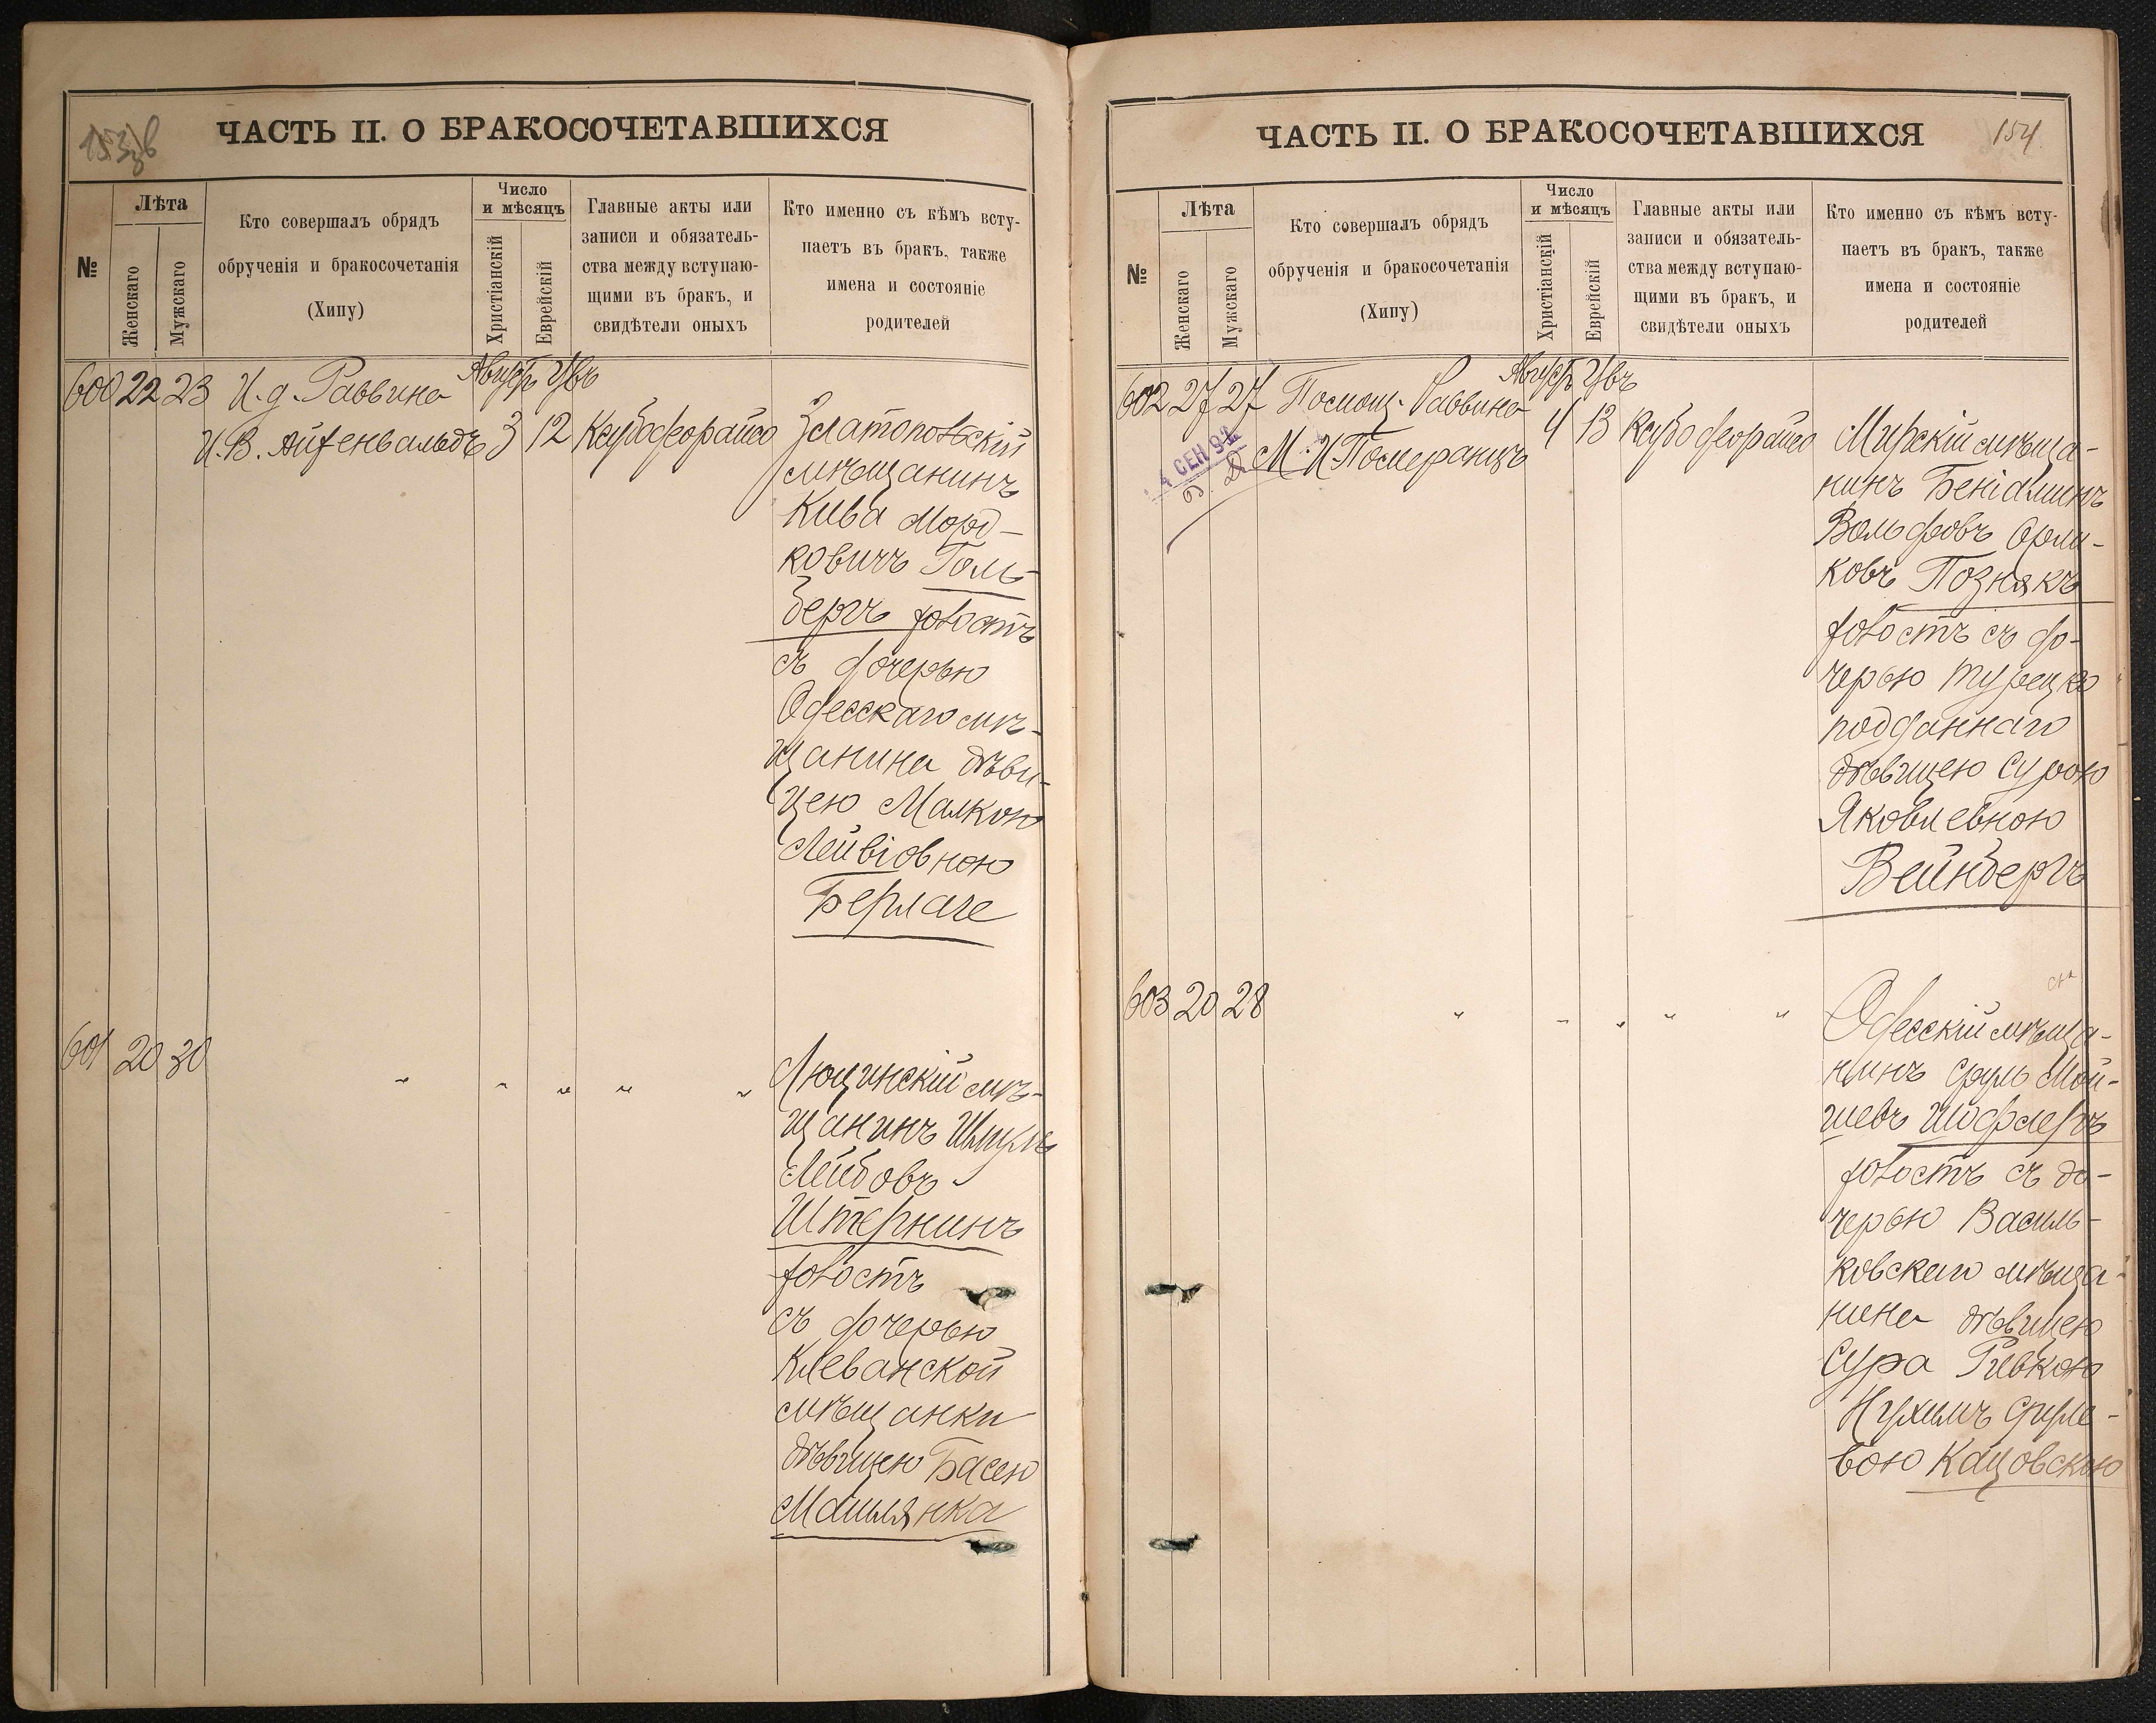 ЧАСТЬ II. О БРАКОСОЧЕТАВШИХСЯ
№
Лѣта
Женскаго
Мужскаго
Кто совершалъ обрядъ
обрученія и бракосочетанія
(Хипу)
Число
и мѣсяцъ
Христіанскій
Еврейскій
Главные акты или
записи и обязатель-
ства между вступаю-
щими въ бракъ, и
свидѣтели оныхъ
Кто именно съ кѣмъ всту-
паетъ въ бракъ, также
имена и состояніе
родителей
600 22 23 И. д. Раввина
И. В. Айзенвальдъ 3 12
Златопольскій
мѣщанинъ
Кива Морд-
ковичъ Голь-
бергъ холостъ
съ дочерью
Одесскаго мѣ-
щанина дѣви-
цею Малкою
Лейвіовною
Берлаге
601 20 30
Люцинскій мѣ-
щанинъ Шмуль
Лейбовъ
Штернинъ
холостъ
съ дочерью
Клеванской
мѣщанки
дѣвицею Басею
Машлянка
ЧАСТЬ II. О БРАКОСОЧЕТАВШИХСЯ
154
№
Лѣта
Женскаго
Мужскаго
Кто совершалъ обрядъ
обрученія и бракосочетанія
(Хипу)
Число
и мѣсяцъ
Христіанскій
Еврейскій
Главные акты или
записи и обязатель-
ства между вступаю-
щими въ бракъ, и
свидѣтели оныхъ
Кто именно съ кѣмъ всту-
паетъ въ бракъ, также
имена и состояніе
родителей
602 27 27 Помощ. Раввина
М. И. Померанцъ 4 13
4 СЕН 92
Мирскій мѣща-
нинъ Беніаминъ
Вольфовъ Орли-
ковъ Познякъ
холостъ съ до-
черью турецко
подданнаго
дѣвицею Сурою
Яковлевною
Вейнбергъ
603 20 28
Одесскій мѣща-
нинъ Сруль Мой-
шевъ Шофлеръ
холостъ съ до-
черью Василь-
ковскаго мѣща-
нина дѣвицею
Сура Ривкою
Нухимъ Сруле-
вою Кацовскою